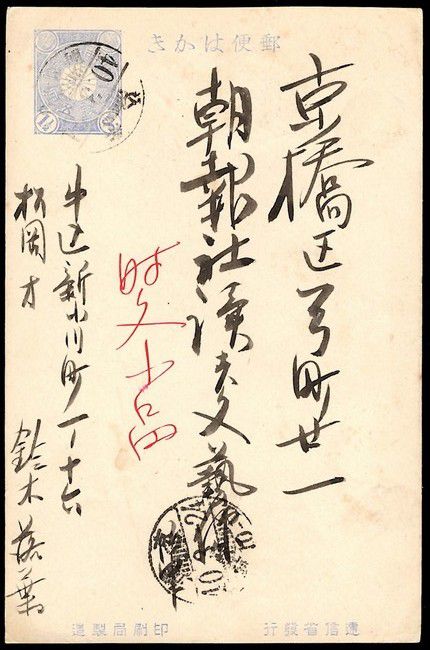 郵便はかき
1½
40
京橋区弓町廿一
朝報社
文藝
時文小品
牛込新小川町一ノ十六
松岡方
鈴木落葉
遞信省發行
印刷局製造